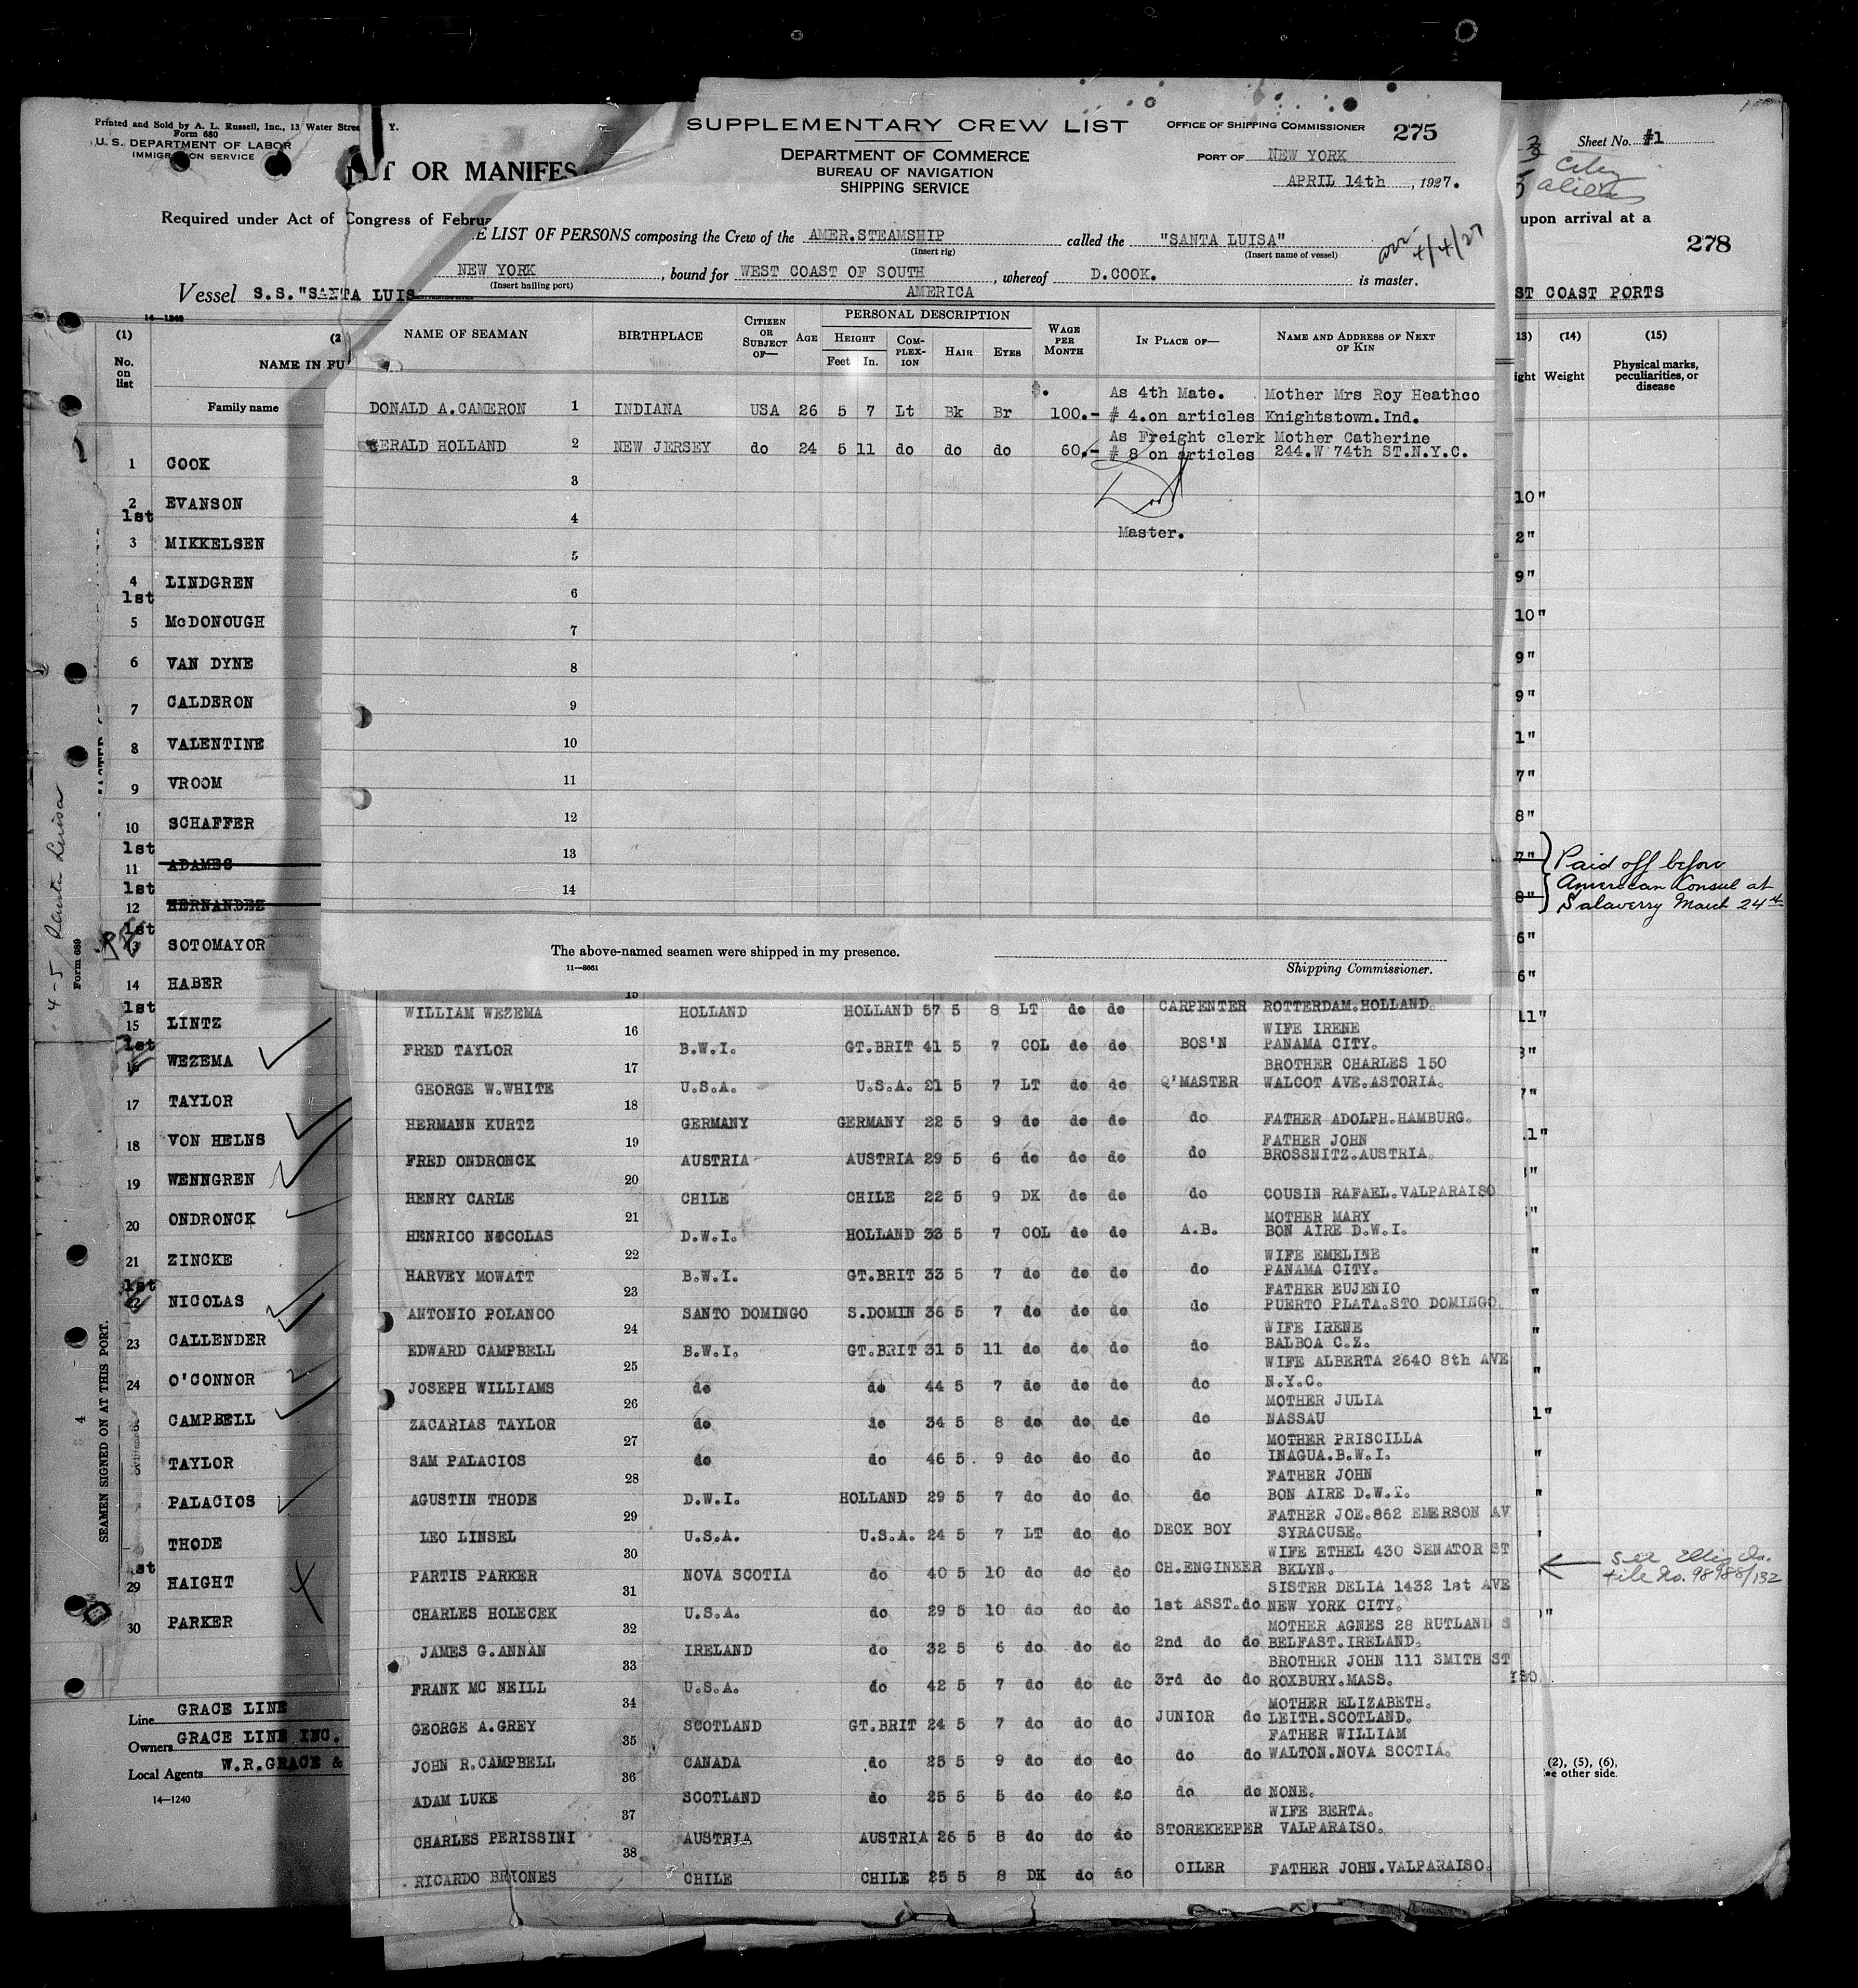 Printed and Sold by A. L. Russell, Inc., 13 Water Stree Y.
Form 680
U. S. DEPARTMENT OF LABOR
IMMIGRATION SERVICE
OR MANIFES
Required under Act of Congress of Februa
Vessel S.S."SANTA LUIS
14—1240
(1)
No. on list
(2
NAME IN FU
Family name
1 COOK
2 EVANSON
1st
3 MIKKELSEN
4 LINDGREN
1st
5 McDONOUGH
6 VAN DYNE
7 CALDERON
8 VALENTINE
9 VROOM
10 SCHAFFER
1st
11 ADAMES
1st
12 HERNANDEZ
1st
13 SOTOMAYOR
14 HABER
1st
15 LINTZ
1st
16 WEZEMA
17 TAYLOR
18 VON HELNS
19 WENNGREN
20 ONDRONCK
21 ZINCKE
1st
22 NICOLAS
23 CALLENDER
24 O'CONNOR
CAMPBELL
TAYLOR
PALACIOS
THODE
1st
29 HAIGHT
30 PARKER
Line GRACE LINE
Owners GRACE LINE INC.
Local Agents W.R.GRACE &
14—1240
4-5 Santa Luisa
Form 689
SEAMEN SIGNED ON AT THIS PORT.
SUPPLEMENTARY CREW LIST
OFFICE OF SHIPPING COMMISSIONER 275
DEPARTMENT OF COMMERCE
BUREAU OF NAVIGATION
SHIPPING SERVICE
PORT OF NEW YORK
APRIL 14th, 1927.
E LIST OF PERSONS composing the Crew of the AMER.STEAMSHIP called the "SANTA LUISA"
(Insert rig) (Insert name of vessel)
4/4/27
NEW YORK, bound for WEST COAST OF SOUTH AMERICA, whereof D.COOK. is master.
(Insert hailing port)
NAME OF SEAMAN BIRTHPLACE CITIZEN OR SUBJECT OF— AGE PERSONAL DESCRIPTION HEIGHT Feet In. COMPLEXION HAIR EYES WAGE PER MONTH IN PLACE OF— NAME AND ADDRESS OF NEXT OF KIN
As 4th Mate. Mother Mrs Roy Heathco
DONALD A.CAMERON 1 INDIANA USA 26 5 7 Lt Bk Br $. 100.- # 4.on articles Knightstown.Ind.
As Freight clerk Mother Catherine
GERALD HOLLAND 2 NEW JERSEY do 24 5 11 do do do 60.- # 8 on articles 244.W 74th ST.N.Y.C.
3
4
Master.
5
6
7
8
9
10
11
12
13
14
The above-named seamen were shipped in my presence.
11—8661
Shipping Commissioner.
15
WILLIAM WEZEMA HOLLAND HOLLAND 57 5 8 LT do do CARPENTER ROTTERDAM.HOLLAND.
16 WIFE IRENE
FRED TAYLOR B.W.I. GT.BRIT 41 5 7 COL do do BOS'N PANAMA CITY.
17 BROTHER CHARLES 150
GEORGE W.WHITE U.S.A. U.S.A. 21 5 7 LT do do Q'MASTER WALCOT AVE.ASTORIA.
18
HERMANN KURTZ GERMANY GERMANY 22 5 9 do do do do FATHER ADOLPH.HAMBURG.
19 FATHER JOHN
FRED ONDRONCK AUSTRIA AUSTRIA 29 5 6 do do do do BROSSNITZ.AUSTRIA.
20
HENRY CARLE CHILE CHILE 22 5 9 DK do do do COUSIN RAFAEL.VALPARAISO
21 MOTHER MARY
HENRICO NICOLAS D.W.I. HOLLAND 33 5 7 COL do do A.B. BON AIRE D.W.I.
22 WIFE EMELINE
HARVEY MOWATT B.W.I. GT.BRIT 33 5 7 do do do do PANAMA CITY.
23 FATHER EUJENIO
ANTONIO POLANCO SANTO DOMINGO S.DOMIN 36 5 7 do do do do PUERTO PLATA.STO DOMINGO.
24 WIFE IRENE
EDWARD CAMPBELL B.W.I. GT.BRIT 31 5 11 do do do do BALBOA C.Z.
25 WIFE ALBERTA 2640 8th AVE
JOSEPH WILLIAMS do do 44 5 7 do do do do N.Y.C.
26 MOTHER JULIA
ZACARIAS TAYLOR do do 34 5 8 do do do do NASSAU
27 MOTHER PRISCILLA
SAM PALACIOS do do 46 5 9 do do do do INAGUA.B.W.I.
28 FATHER JOHN
AGUSTIN THODE D.W.I. HOLLAND 29 5 7 do do do do BON AIRE D.W.I.
29 FATHER JOE.862 EMERSON AV
LEO LINSEL U.S.A. U.S.A. 24 5 7 LT do do DECK BOY SYRACUSE.
30 WIFE ETHEL 430 SENATOR ST
PARTIS PARKER NOVA SCOTIA do 40 5 10 do do do CH.ENGINEER BKLYN.
31 SISTER DELIA 1432 1st AVE
CHARLES HOLECEK U.S.A. do 29 5 10 do do do 1st ASST.do NEW YORK CITY.
32 MOTHER AGNES 28 RUTLAND S
JAMES G.ANNAN IRELAND do 32 5 6 do do do 2nd do do BELFAST.IRELAND.
33 BROTHER JOHN 111 SMITH ST
FRANK MC NEILL U.S.A. do 42 5 7 do do do 3rd do do ROXBURY.MASS.
34 MOTHER ELIZABETH.
GEORGE A.GREY SCOTLAND GT.BRIT 24 5 7 do do do JUNIOR do LEITH.SCOTLAND.
35 FATHER WILLIAM
JOHN R.CAMPBELL CANADA do 25 5 9 do do do do do WALTON.NOVA SCOTIA.
36
ADAM LUKE SCOTLAND do 25 5 5 do do do do do NONE.
37 WIFE BERTA.
CHARLES PERISSINI AUSTRIA AUSTRIA 26 5 8 do do do STOREKEEPER VALPARAISO.
38
RICARDO BRIONES CHILE CHILE 25 5 8 DK do do OILER FATHER JOHN.VALPARAISO.
Sheet No. #1
City
aliens
upon arrival at a
278
ST COAST PORTS
13) (14) (15)
ight Weight Physical marks, peculiarities, or disease
10"
2"
9"
10"
9"
9"
1"
7"
8"
7"
8"
Paid off before
American Consul at
Salaverry March 24th
6"
6"
11"
See Ellis Is.
file No. 98988/132
(2), (5), (6),
ee other side.